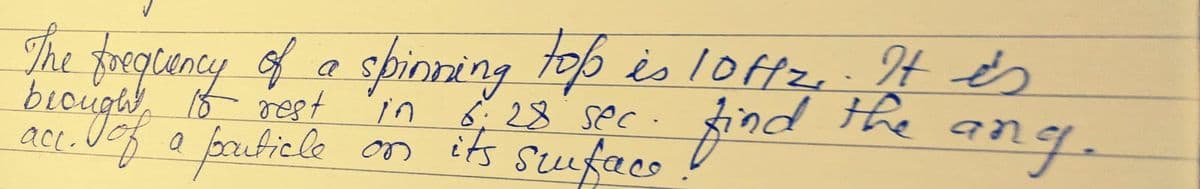 The freqcuency of a spinning top is 10Hz. It is
brought to rest in 6.28 sec. find the ang.
acc. of a particle on its surface.